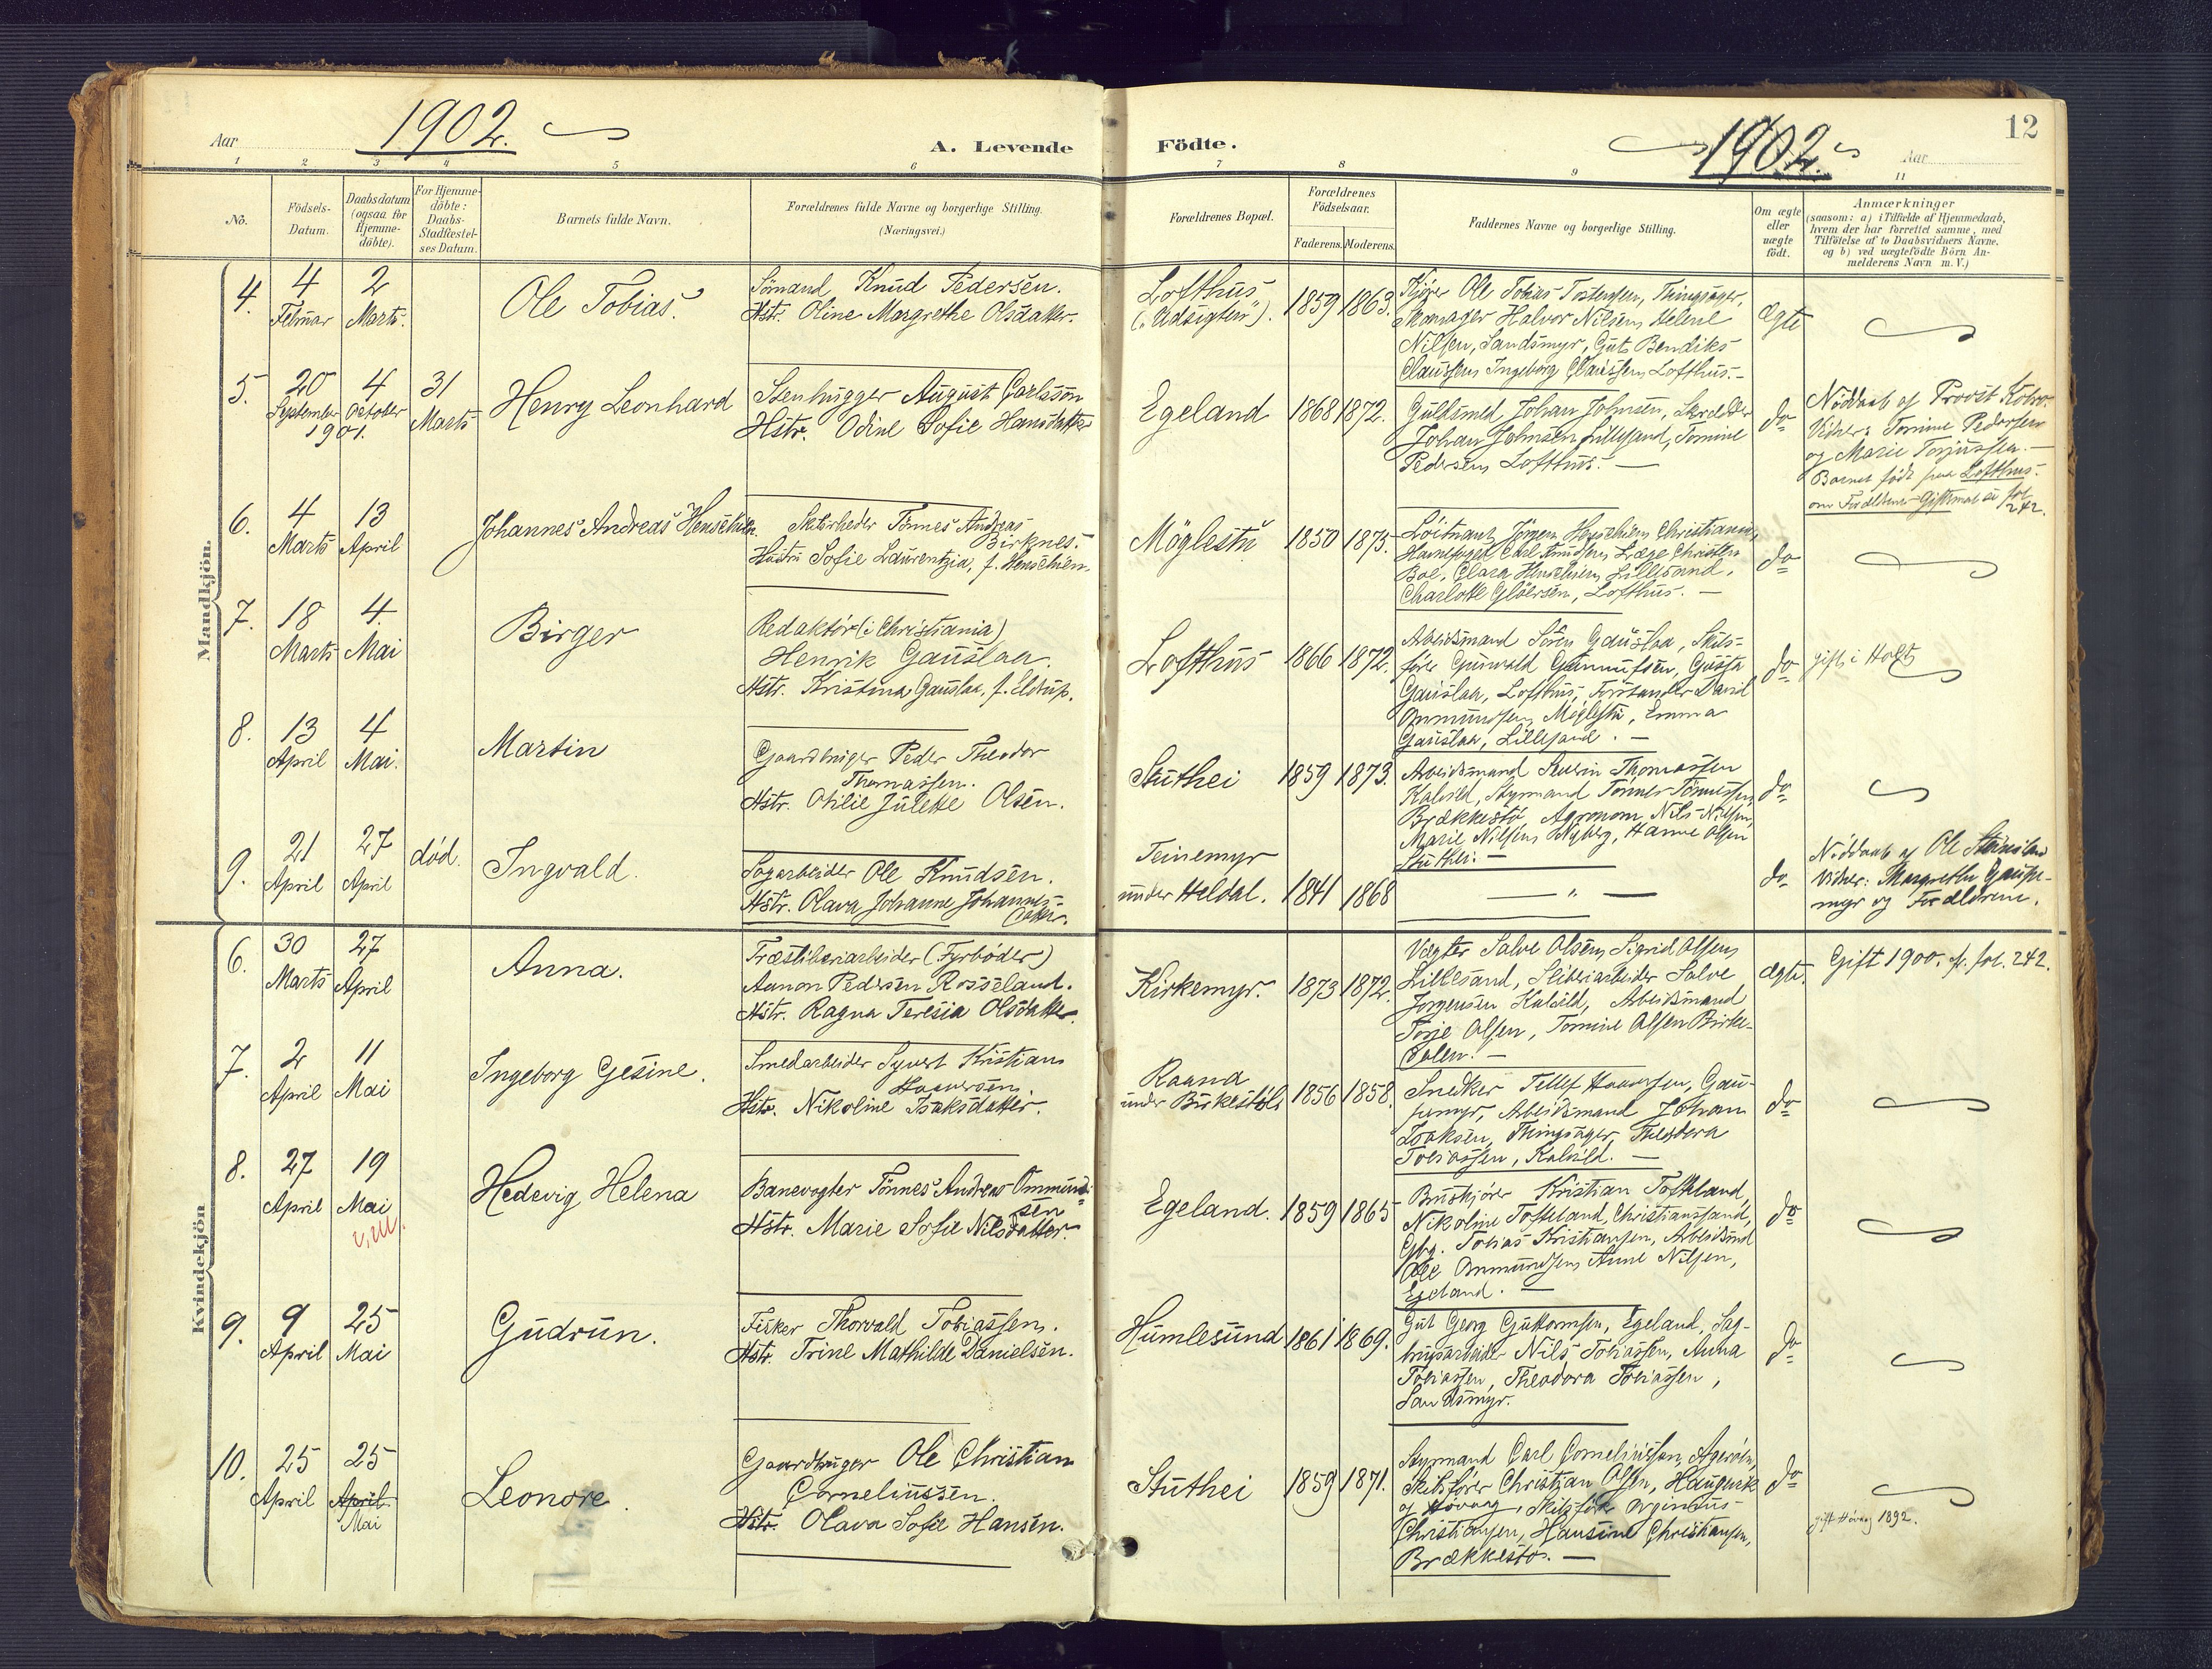 1902.
Aar
A. Levende
Födte.
1902.
Aar
12
1
2
3
4
5
6
7
8
9
11
No.
Födsels-
Datum.
Daabsdatum
(ogsaa for
Hjemme-
döbte).
For Hjemme-
döbte:
Daabs-
Stadfæstel-
ses Datum.
Barnets fulde Navn.
Forældrenes fulde Navne og borgerlige Stilling.
(Næringsvei.)
Forældrenes Bopæl.
Forældrenes
Födselsaar.
Faderens.
Moderens.
Faddernes Navne og borgerlige Stilling.
Om ægte
eller
uægte
födt.
Anmærkninger
(saasom: a) i Tilfælde af Hjemmedaab,
hvem der har forrettet samme, med
Tilföielse af to Daabsvidners Navne,
og b) ved uægtefödte Börn An-
melderens Navn m. V.)
Mandkjön.
4.
4
Februar
2
Marts.
Ole Tobias.
Sömand Knud Pedersen.
Hstr. Oline Margrethe Olsdatter.
Lofthus
("Udsigten").
1859
1863.
Kjörer Ole Tobias Tostensen, Thingsager,
Skomager Halvor Nilsen, Helene
Nilsen, Sandsmyr, Gut Bendiks
Claussen, Ingeborg Claussen, Lofthus.
Ægte
5.
20
September
1901.
4
October
31
Marts
Henry Leonhard
Stenhugger August Carlsson
Hstr. Odine Sofie Hansdatter
Egeland
1868
1872.
Guldsmed Johan Johnsen, Skrædder
Johan Johnsen, Lillesand, Tomine
Pedersen, Lofthus.
do
Nöddaab af Provst
Vidner: Tomine Pedersen
og Marie Torjussen.
Barnet födt paa Lofthus.
om Forældrenes Giftermaal se fol
242.
6.
4
Marts
13
April
Johannes Andreas Henschien
Tönnes Andreas
Birknes.
Hustru Sofie Laurentzia, f. Henschien.
Möglestu
1850
1875.
Löitnant Jörgen Henschien, Christiania,
Carl Knudsen, Læge Christen
Boe, Clara Henschien, Lillesand,
Charlotte Glöersen, Lofthus.
do
7.
18
Marts
4.
Mai
Birger
Redaktör (i Christiania)
Henrik Gauslaa.
Hstr. Kristina Gauslaa, f. Eldrup.
Lofthus
1866
1872.
Arbeidsmand Sören Gauslaa, Skibs-
förer Gunvald Gunnufsen, Gusta
Gauslaa, Lofthus, Forstander David
Ommundsen, Möglestu, Emma
Gauslaa, Lillesand.
do
gift i Holt
8.
13
April
4
Mai.
Martin
Gaardbruger Peder Theodor
Thomassen.
Hstr. Otilie Julette Olsen.
Stuthei
1859
1873.
Arbeidsmand Severin Thomassen
Kalvild, Styrmand Tönnes Tönnessen,
Brækkestö, Agronom Nils Nilsen,
Marie Nilsen, Nyberg, Hanne Olsen
Stuthei.
do
9.
21
April
27
April
död.
Ingvald.
Sagarbeider Ole Knudsen.
Hstr. Olava Johanne Johannes-
datter.
Teinemyr
under Heldal.
1841
1868
"
do
Nöddaab af Ole
Vidner: Margrethe Gaupe-
myr og Forældrene.
Kvindekjön
6.
30
Marts
27
April
Anna.
Træsliberiarbeider (Fyrböder)
Aanon Pedersen Rosseland.
Hstr. Ragna Teresia Olsdatter.
Kirkemyr.
1873
1872.
Vægter Salve Olsen, Sigrid Olsen,
Lillesand, Sliberiarbeider Salve
Jorgensen Kalvild, Arbeidsmand
Torje Olsen, Tomine Olsen Birke-
dalen.
ægte.
Gift 1900. fol. 242.
7.
2
April
11
Mai
Ingeborg Gesine.
Smedarbeider Syvert Kristian
Haaversen.
Hstr. Nikoline Isaksdatter.
Raana
under Birkestöl
1856
1858.
Snedker Tellef Haaversen, Gau-
pemyr, Arbeidsmand Johan
Isaksen, Thingsager, Theodora
Tobiassen, Kalvild.
do
8.
27
April
19
Mai
Hedevig Helena
Banevogter Tönnes Andreas Ommund-
sen
Hstr. Marie Sofie Nilsdatter.
Egeland.
1859
1865
Kristian Tofteland,
Nikoline Tofteland, Christianssand,
Gbr. Tobias Kristiansen, Arbeidsmd
Ole Ommundsen, Anne Nilsen,
Egeland.
do
9.
9
April
25
Mai
Gudrun.
Fisker Thorvald Tobiassen.
Hstr. Trine Mathilde Danielsen.
Humlesund
1861
1869.
Gut Georg Guttormsen, Egeland, Sag-
brugsarbeider Nils Tobiassen, Anna
Tobiassen, Theodora Tobiassen,
Sandsmyr.
do
10.
25
April
25
April
Mai
Leonore.
Gaardbruger Ole Christian
Corneliussen.
Hstr. Olava Sofie Hansen.
Stuthei
1859
1871.
Styrmand Carl Corneliussen, Ageröen,
Skibsförer Christian Olsen, Haugevik
af Hövaag, Skibsförer
Christiansen, Hansine Christiansen,
Brækkestö.
do
gift Hövaag 1892.